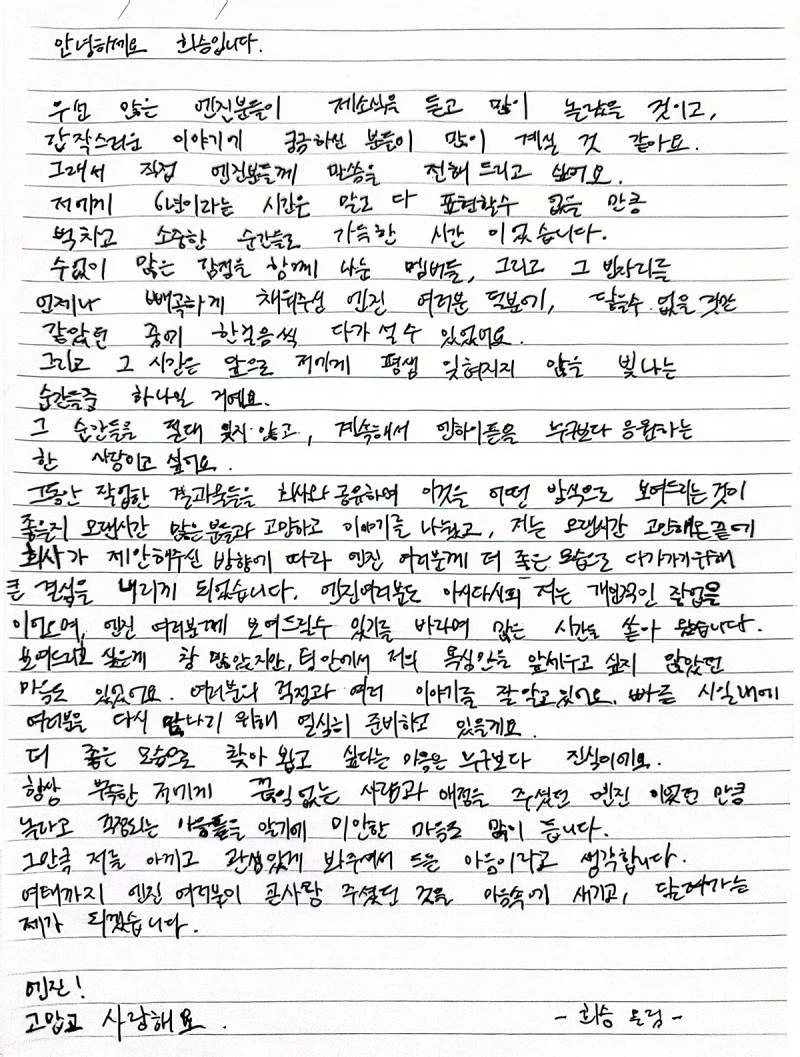 안녕하세요 희승입니다.
우선 많은 엔진분들이 제소식을 듣고 많이 놀랐을 것이고,
갑작스러운 이야기에 궁금하신 분들이 많이 계실 것 같아요.
그래서 직접 엔진분들께 말씀을 전해 드리고 싶어요.
저에게 6년이라는 시간은 말로 다 표현할수 없을 만큼
벅차고 소중한 순간들로 가득한 시간 이었습니다.
수없이 많은 감정을 함께 나눈 멤버들, 그리고 그 빈자리를
언제나 빼곡하게 채워주신 엔진 여러분 덕분에, 닿을수 없을 것만
같았던 꿈에 한걸음씩 다가 설 수 있었어요.
그리고 그 시간은 앞으로 저에게 평생 잊혀지지 않을 빛나는
순간들중 하나일 거예요.
그 순간들을 절대 잊지 않고, 계속해서 엔하이픈을 누구보다 응원하는
한 사람이고 싶어요.
그동안 작업한 결과물들을 회사와 공유하며 이것을 어떤 방식으로 보여드리는것이
좋을지 오랜시간 많은분들과 고민하고 이야기를 나눴고, 저는 오랜시간 고민해온끝에
회사가 제안해주신 방향에 따라 엔진 여러분께 더 좋은 모습으로 다가가기위해
큰 결심을 내리게 되었습니다. 엔진여러분도 아시다시피 저는 개인적인 작업을
이어오며, 엔진 여러분께 보여드릴수 있기를 바라며 많은 시간을 쏟아 왔습니다.
보여드리고 싶은게 참 많았지만, 팀 안에서 저의 욕심만을 앞세우고 싶지 않았던
마음도 있었어요. 여러분의 걱정과 여러 이야기를 잘 알고 있어요. 빠른 시일내에
여러분을 다시 만나기 위해 열심히 준비하고 있을게요.
더 좋은 모습으로 찾아 뵙고 싶다는 마음은 누구보다 진심이에요.
항상 부족한 저에게 끊임없는 사랑과 애정을 주셨던 엔진 이었던 만큼
놀라고 걱정되는 마음들을 알기에 미안한 마음도 많이 듭니다.
그만큼 저를 아끼고 관심있게 봐주셔서 드는 마음이라고 생각합니다.
여태까지 엔진 여러분이 큰사랑 주셨던 것을 마음속에 새기고, 달려가는
제가 되겠습니다.
엔진!
고맙고 사랑해요.
- 희승 올림 -